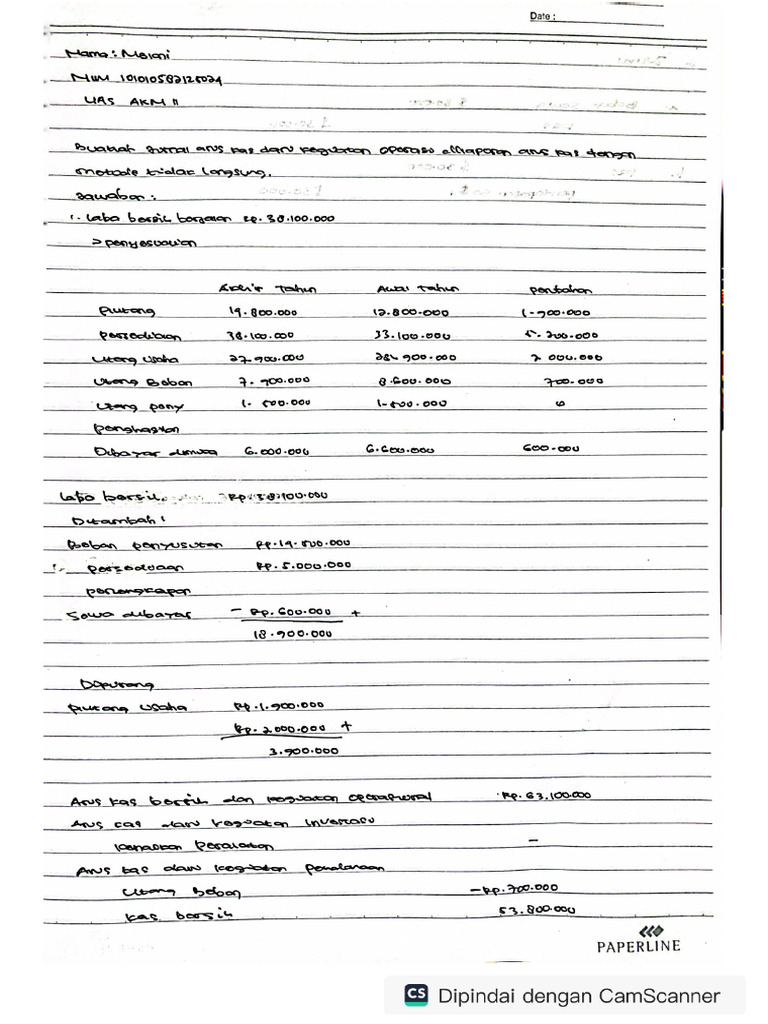 Date :
Nama : Meiani
NIM 101010582125024
UAS AKM II
Buatlah jurnal arus kas dari kegiatan operasi dilaporan arus kas dengan
metode tidak langsung.
Jawaban :
1. Laba bersih berjalan Rp. 38.100.000
> penyesuaian
Akhir Tahun Awal Tahun perubahan
piutang 14.800.000 12.800.000 1.900.000
persediaan 38.100.000 33.100.000 5.200.000
Utang Usaha 27.900.000 284.900.000 2.000.000
Utang Beban 7.900.000 8.600.000 700.000
Utang peny 1.500.000 1.500.000 0
penghasilan
Dibayar dimuka 6.000.000 6.600.000 600.000
Laba bersih Rp. 38.100.000
Ditambah :
Beban penyusutan Rp. 14.500.000
persediaan Rp. 5.000.000
perlengkapan
Sewa dibayar - Rp. 600.000 +
18.900.000
Dikurang
piutang usaha Rp. 1.900.000
Rp. 2.000.000 +
3.900.000
Arus kas bersih dan kegiatan operasional Rp. 63.100.000
Arus cas dari kegiatan investasi
kenaikan peralatan -
Arus kas dari kegiatan pendanaan
Utang Beban - Rp. 700.000
kas bersih 53.800.000
PAPERLINE
CS Dipindai dengan CamScanner